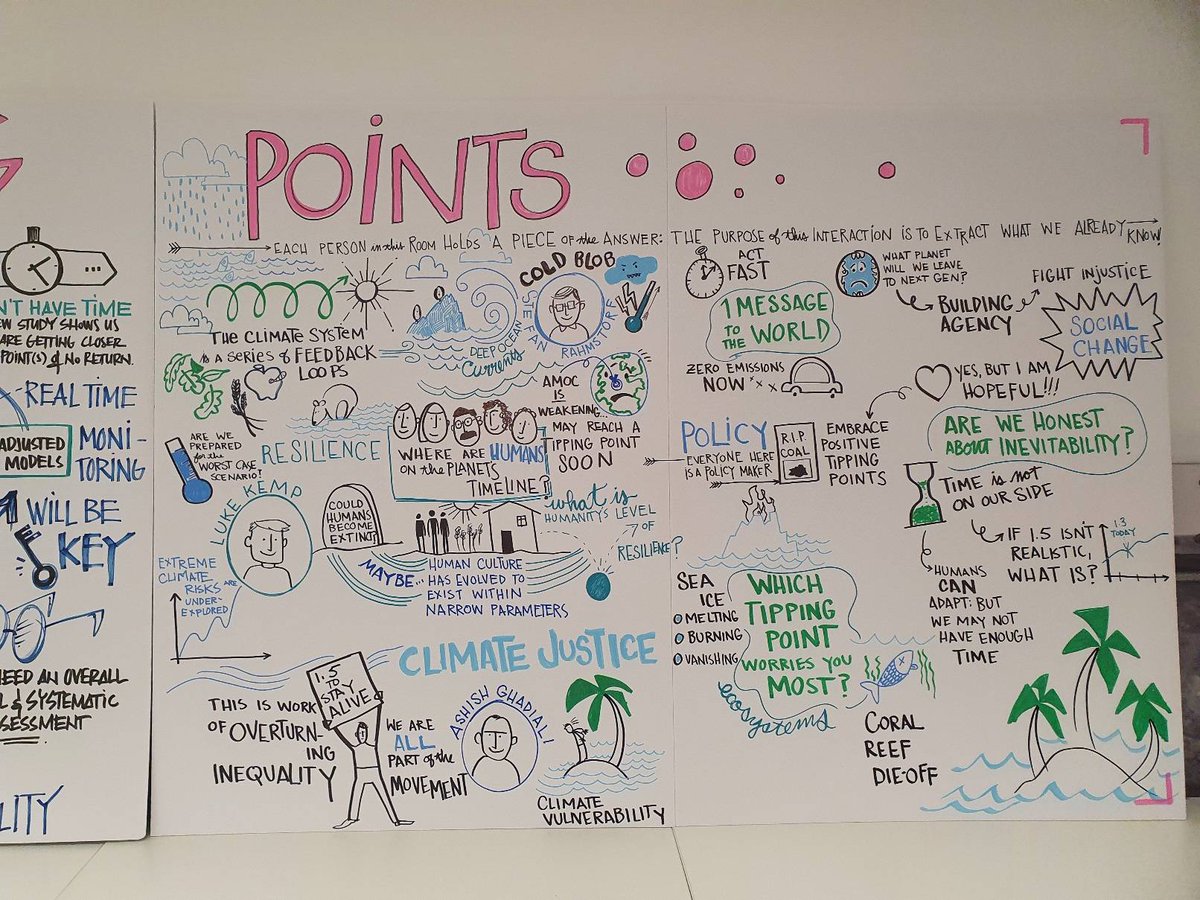 POINTS
EACH PERSON in this ROOM HOLDS A PIECE OF the ANSWER: THE PURPOSE of this INTERACTION IS TO EXTRACT WHAT WE ALREADY KNOW
N'T HAVE TIME
EW STUDY SHOWS US
ARE GETTING CLOSER
POINT(S) of NO RETURN.
REAL TIME
MONI-
TORING
ADJUSTED
MODELS
WILL BE
KEY
NEED AN OVERALL
& SYSTEMATIC
SSESSMENT
LITY
THE CLIMATE SYSTEM
IS A SERIES of FEEDBACK
LOOPS
DEEP OCEAN
Currents
COLD BLOB
STEFAN RAHMSTORF
AMOC
IS
WEAKENING...
MAY REACH A
TIPPING POINT
SOON
ARE WE
PREPARED
for the
WORST CASE
SCENARIO?
RESILIENCE
WHERE ARE HUMANS
ON the PLANETS
TIMELINE?
what is
HUMANITY'S LEVEL
OF
RESILIENCE?
LUKE KEMP
COULD
HUMANS
BECOME
EXTINCT
MAYBE...
HUMAN CULTURE
HAS EVOLVED TO
EXIST WITHIN
NARROW PARAMETERS
EXTREME
CLIMATE
RISKS ARE
UNDER-
EXPLORED
CLIMATE JUSTICE
THIS IS WORK
OF OVERTURN-
ING
INEQUALITY
1.5
TO
STAY
ALIVE
WE ARE
ALL
PART of the
MOVEMENT
ASHISH GHADIALI
CLIMATE
VULNERABILITY
ACT
FAST
1 MESSAGE
to the
WORLD
WHAT PLANET
WILL WE LEAVE
TO NEXT GEN?
BUILDING
AGENCY
FIGHT INJUSTICE
SOCIAL
CHANGE
ZERO EMISSIONS
NOW
YES, BUT I AM
HOPEFUL!!!
POLICY
EVERYONE HERE
IS A POLICY MAKER
R.I.P.
COAL
EMBRACE
POSITIVE
TIPPING
POINTS
ARE WE HONEST
ABOUT INEVITABILITY?
TIME is NOT
ON OUR SIDE
IF 1.5 ISN'T
REALISTIC,
WHAT IS?
1.3
TODAY
HUMANS
CAN
ADAPT: BUT
WE MAY NOT
HAVE ENOUGH
TIME
SEA
ICE
MELTING
BURNING
VANISHING
WHICH
TIPPING
POINT
WORRIES YOU
MOST?
ecosystems
CORAL
REEF
DIE-OFF